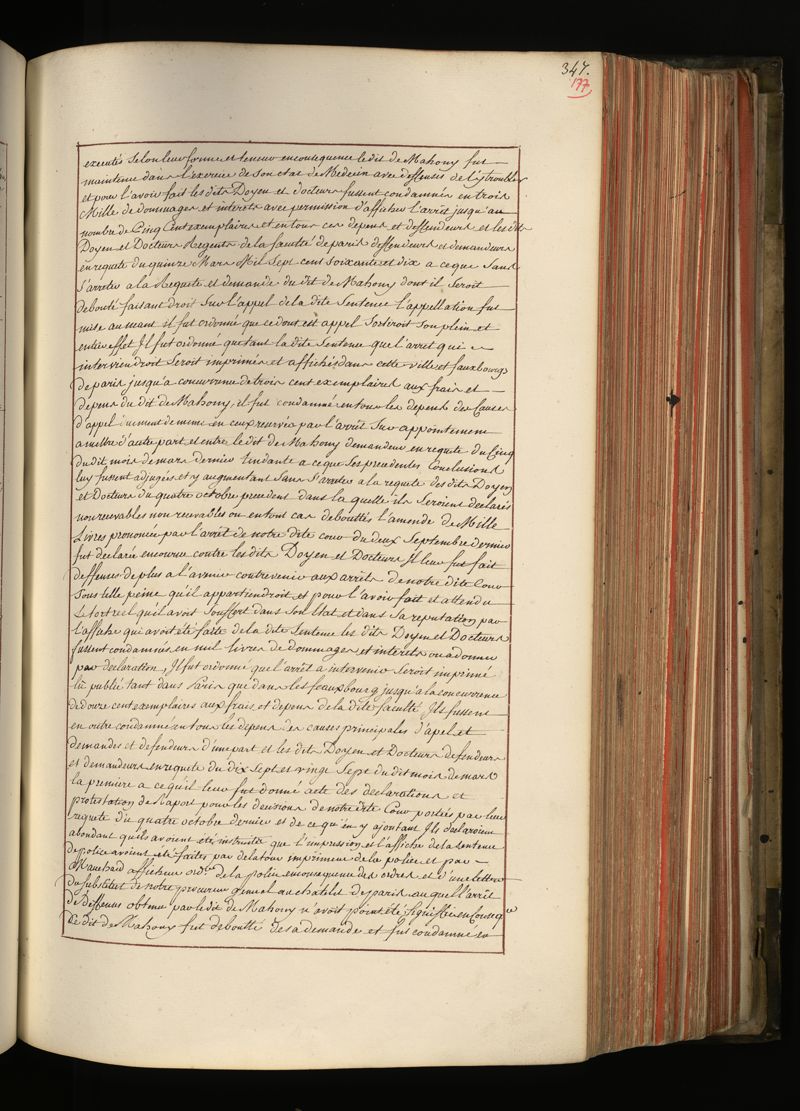 347.
177
executés Selon leur forme et teneur en consequence le dit de Mahony fut
maintenu dans l'exercice de Son etat de Medecin avec deffenses de l'y troubler
et pour l'avoir fait les dits Doyen et docteurs fussent condamnés en trois
Mille de dommages et interets avec permission d'afficher l'arrêt jusqu'au
nombre de Cinq Cent exemplaires et en tous ces depens et deffendeurs et les dits
Doyen et Docteurs Regents de la faculté de paris deffendeurs et demandeurs
en requete du quinze Mars Mil Sept cent Soixante et dix a ce que Sans
S'arreter a la Requete et demande du dit de Mahony dont il Seroit
debouté faisant droit Sur l'appel de la dite Sentence l'appellation fut
mise au neant il fut ordonné que ce dont est appel Sortiroit Son plein et
entier effet Il fut ordonné que tant la dite Sentence que l'arret qui
interviendroit Seroit imprimés et affichés dans cette ville et fauxbourgs
de paris jusqu'a concurrence de trois cent exemplaires aux frais et
depens du dit de Mahony, il fut condamné en tous les depens des Causes
d'appel et demande même en ceux reservés par l'arrêt Sur appointement
a mettre d'autre part, et entre le dit de Mahony demandeur en requete du Cinq
du dit mois de mars dernier tendante a ce que Ses precedentes Conclusions
luy fussent adjugées et y augmentant Sans S'arreter a la requete des dits Doyen
et Docteurs du quatre octobre precedent dans la quelle ils Seroient declarés
non recevables ou en tout cas deboutés l'amende de Mille
Livres prononcée par l'arrêt de notre dite cour du deux Septembre dernier
fut declarée encourue contre les dits Doyen et Docteurs Il leur fut fait
deffenses de plus a l'avenir contrevenir aux arrêts de notre dite Cour
Sous telle peine qu'il appartiendroit et pour l'avoir fait et attendu
Le tort reel qu'il avoit Souffert dans Son Etat et dans Sa reputation par
l'affiche qui avoit été faite de la dite Sentence les dits Doyen et Docteurs
fussent condamnés en mil livres de dommages et interets ou a donner
par declaration, Il fut ordonné que l'arrêt a intervenir Seroit imprimé
lû publié tant dans Paris que dans les feauxbourg jusqu'a la concurrence
de douze cent exemplaires aux frais et depens de la dite faculté Ils fussent
en outre condamné en tous les depens des causes principales d'apel et
demandes et defendeurs d'une part et les dits Doyen et Docteurs defendeurs
et demandeurs en requete du dix Sept et vingt Sept du dit mois de mars
la premiere a ce qu'il leur fut donné acte des declarations et
protestation de Raport pour les decisions de notre dte Cour portées par leur
requete du quatre octobre dernier et de ce qu'en y ajoutant Ils declaroient
abondant qu'ils avoient été instruits que l'impression et l'affiche de la Sentence
de police avoient été faites par Delatour imprimeur de la police et par
Marchand afficheur ord.re de la police en consequence des ordres et d'une lettre
du Substitut de notre procureur general au chatelet de paris au quel l'arrêt
de Deffenses obtenu par le dit de Mahony n'avoit point été Signiffié en Conseqce
Le dit de Mahony fut deboutté de Sa demande et fut condamné en